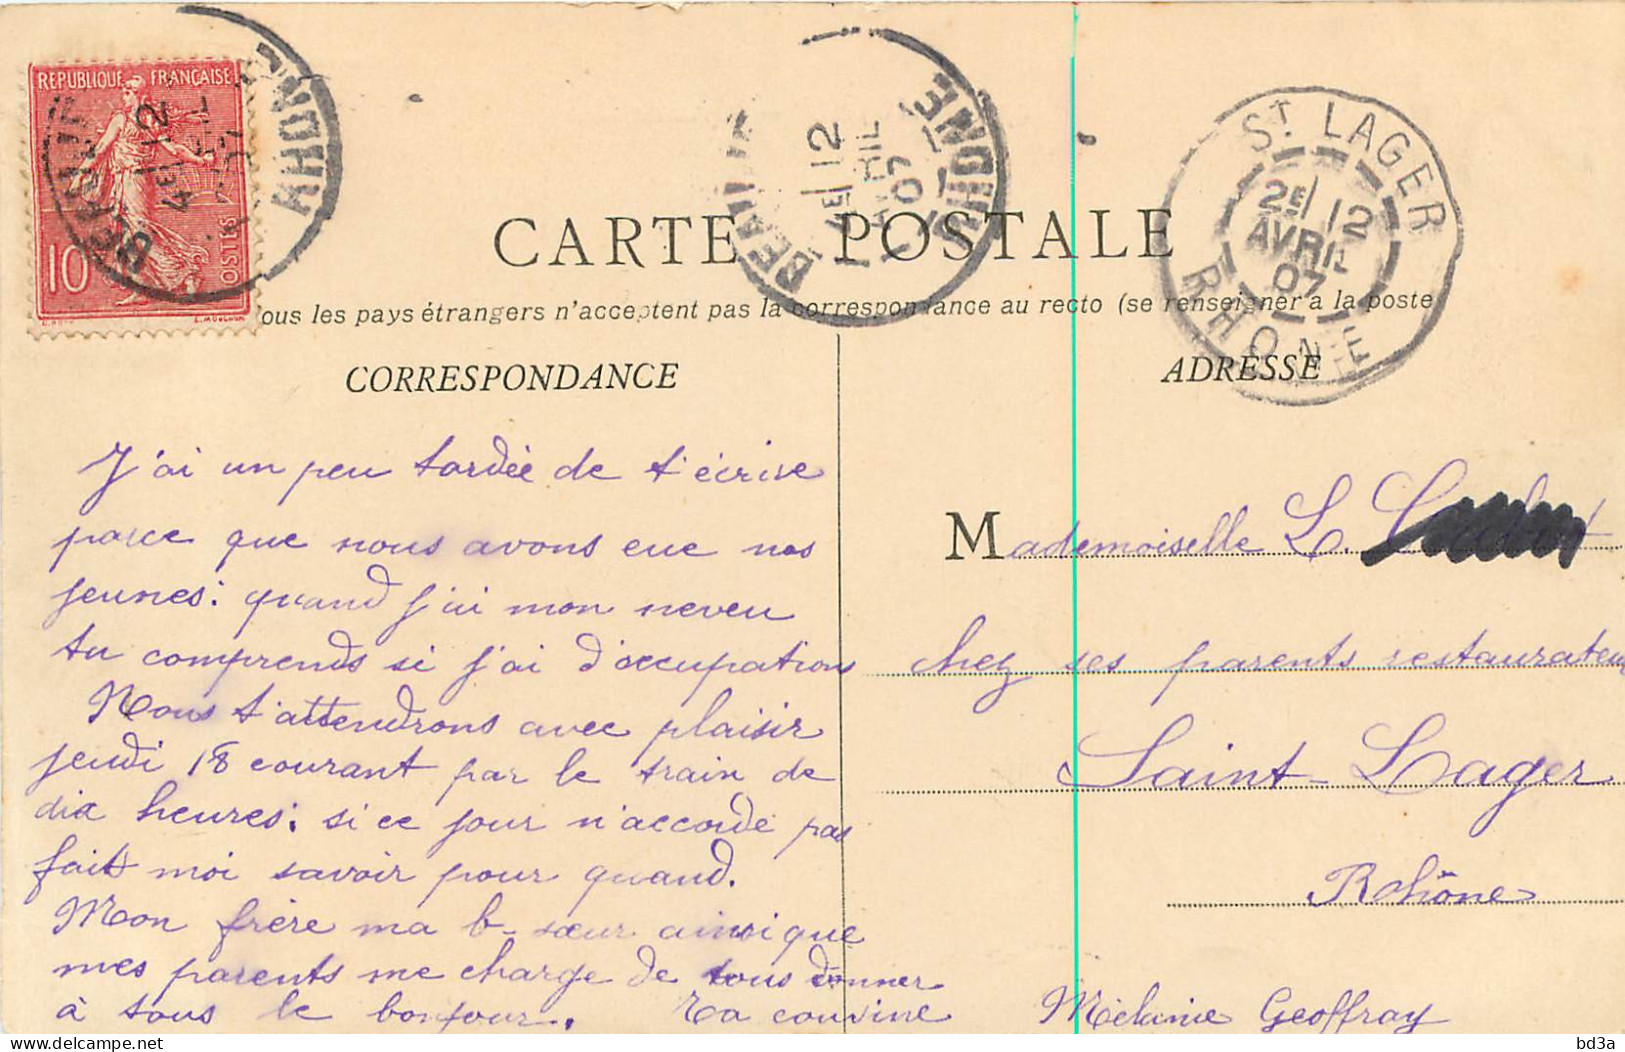 REPUBLIQUE FRANÇAISE
10
POSTES
BEAUJEU
RHONE
4E 12
BEAUJEU
RHONE
4E 12
AVRIL
07
ST LAGER
2E 12
AVRIL
07
RHONE
CARTE POSTALE
Tous les pays étrangers n'acceptent pas la correspondance au recto (se renseigner a la poste
CORRESPONDANCE
ADRESSE
J'ai un peu tardée de t'écrire
parce que nous avons eue nos
jeunes: quand j'ai mon neveu
tu comprends si j'ai d'occupations
Nous t'attendrons avec plaisir
jeudi 18 courant par le train de
dix heures; si ce jour n'accorde pas
fait moi savoir pour quand.
Mon frère ma b-sœur ainsi que
mes parents me charge de vous donner
à tous le bonjour. Ta cousine Mélanie Geoffray
Mademoiselle L.
chez ses parents restaurateur
Saint-Lager
Rohône
delcampe.net
bd3a